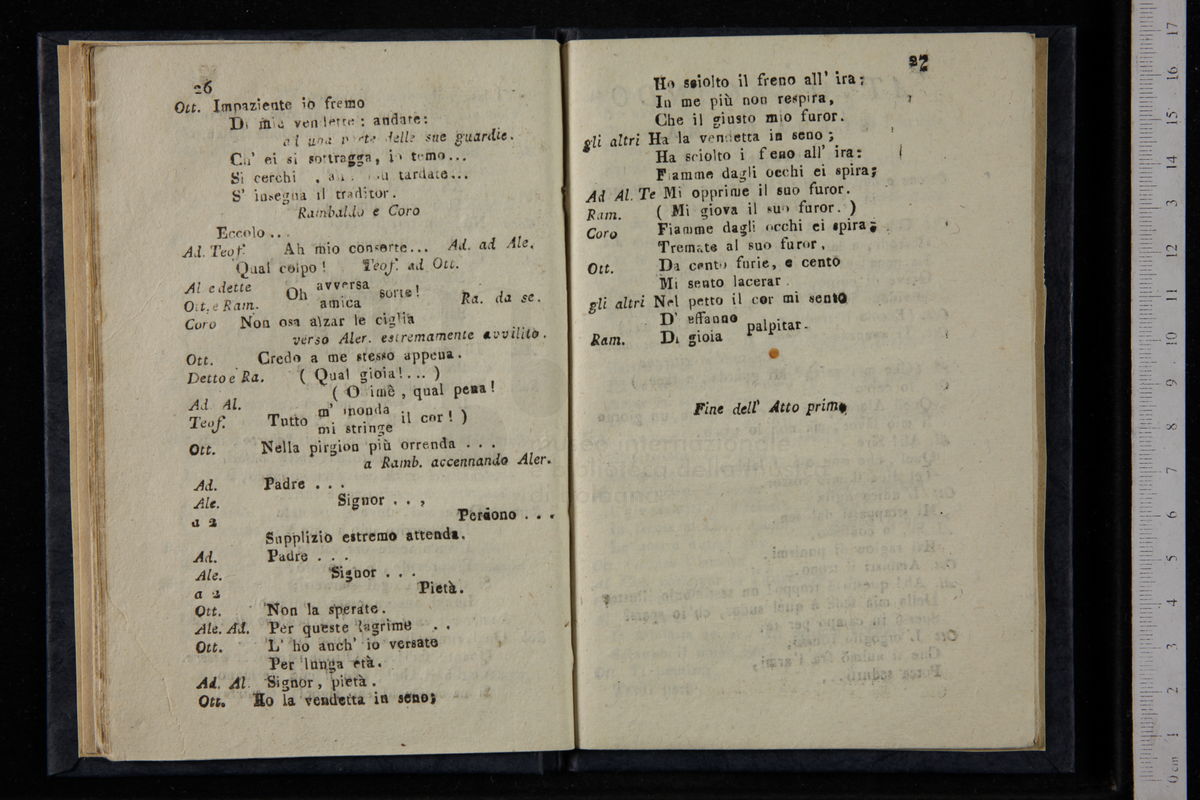 26
Ott. Impaziente io fremo
Di mie vendette: andate:
ad una parte delle sue guardie.
Ch' ei si sottragga, io temo...
Si cerchi tardate...
S' insegua il traditor.
Rambaldo e Coro
Eccolo...
Ad. Teof. Ah mio consorte... Ad. ad Ale.
Qual colpo! Teof. ad Ott.
Al e dette Oh avversa sorte!
Ott. e Ram. amica Ra. da se.
Coro Non osa alzar le ciglia
verso Aler. estremamente avvilito.
Ott. Credo a me stesso appena.
Detto e Ra. ( Qual gioia!... )
( O imè, qual pena!
Ad. Al. Tutto m' inonda il cor! )
Teof. mi stringe
Ott. Nella pirgion più orrenda . . .
a Ramb. accennando Aler.
Ad. Padre . . .
Ale. Signor . . ,
a 2 Perdono . . .
Supplizio estremo attenda.
Ad. Padre . . .
Ale. Signor . . .
a 2 Pietà.
Ott. Non la sperate.
Ale. Ad. Per queste lagrime . .
Ott. L' ho anch' io versate
Per lunga età.
Ad. Al. Signor, pietà.
Ott. Ho la vendetta in seno;
27
Ho sciolto il freno all' ira:
In me più non respira,
Che il giusto mio furor.
gli altri Ha la vendetta in seno;
Ha sciolto i freno all' ira:
Fiamme dagli occhi ei spira;
Ad Al. Te Mi opprime il suo furor.
Ram. ( Mi giova il suo furor. )
Coro Fiamme dagli occhi ei spira;
Tremate al suo furor.
Ott. Da cento furie, e cento
Mi sento lacerar.
gli altri Nel petto il cor mi sento
D' affanno palpitar.
Ram. Di gioia
Fine dell' Atto primo